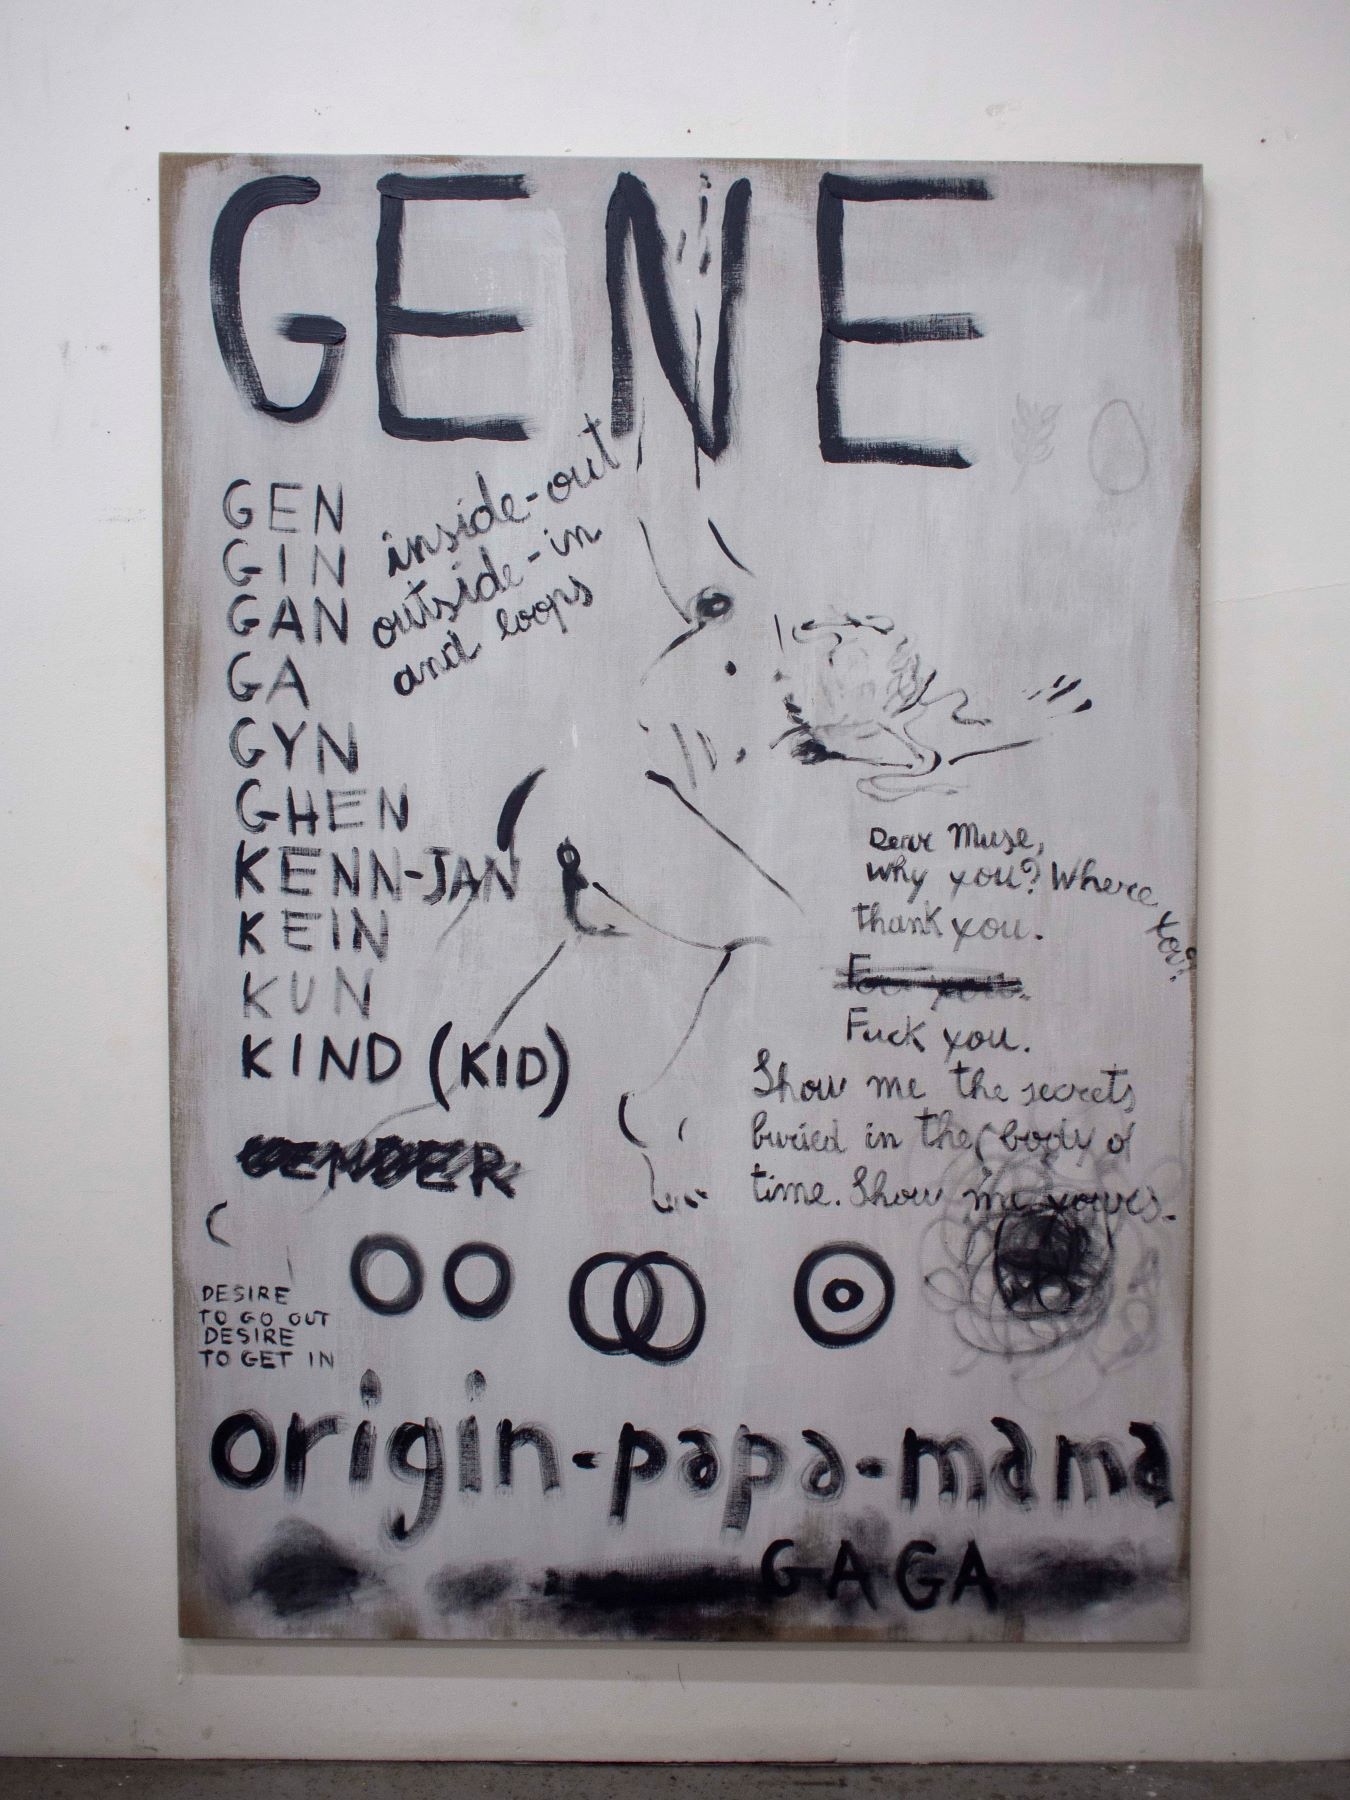 GENE
GEN
GIN
GAN
GA
GYN
GHEN
KENN-JAN
KEIN
KUN
KIND (KID)
GENDER
inside-out
outside-in
and loops
Dear Muse,
why you? Where you?
thank you.
Fuck you.
Show me the secrets
buried in the body of
time. Show me yours.
DESIRE
TO GO OUT
DESIRE
TO GET IN
origin-papa-mama
GAGA